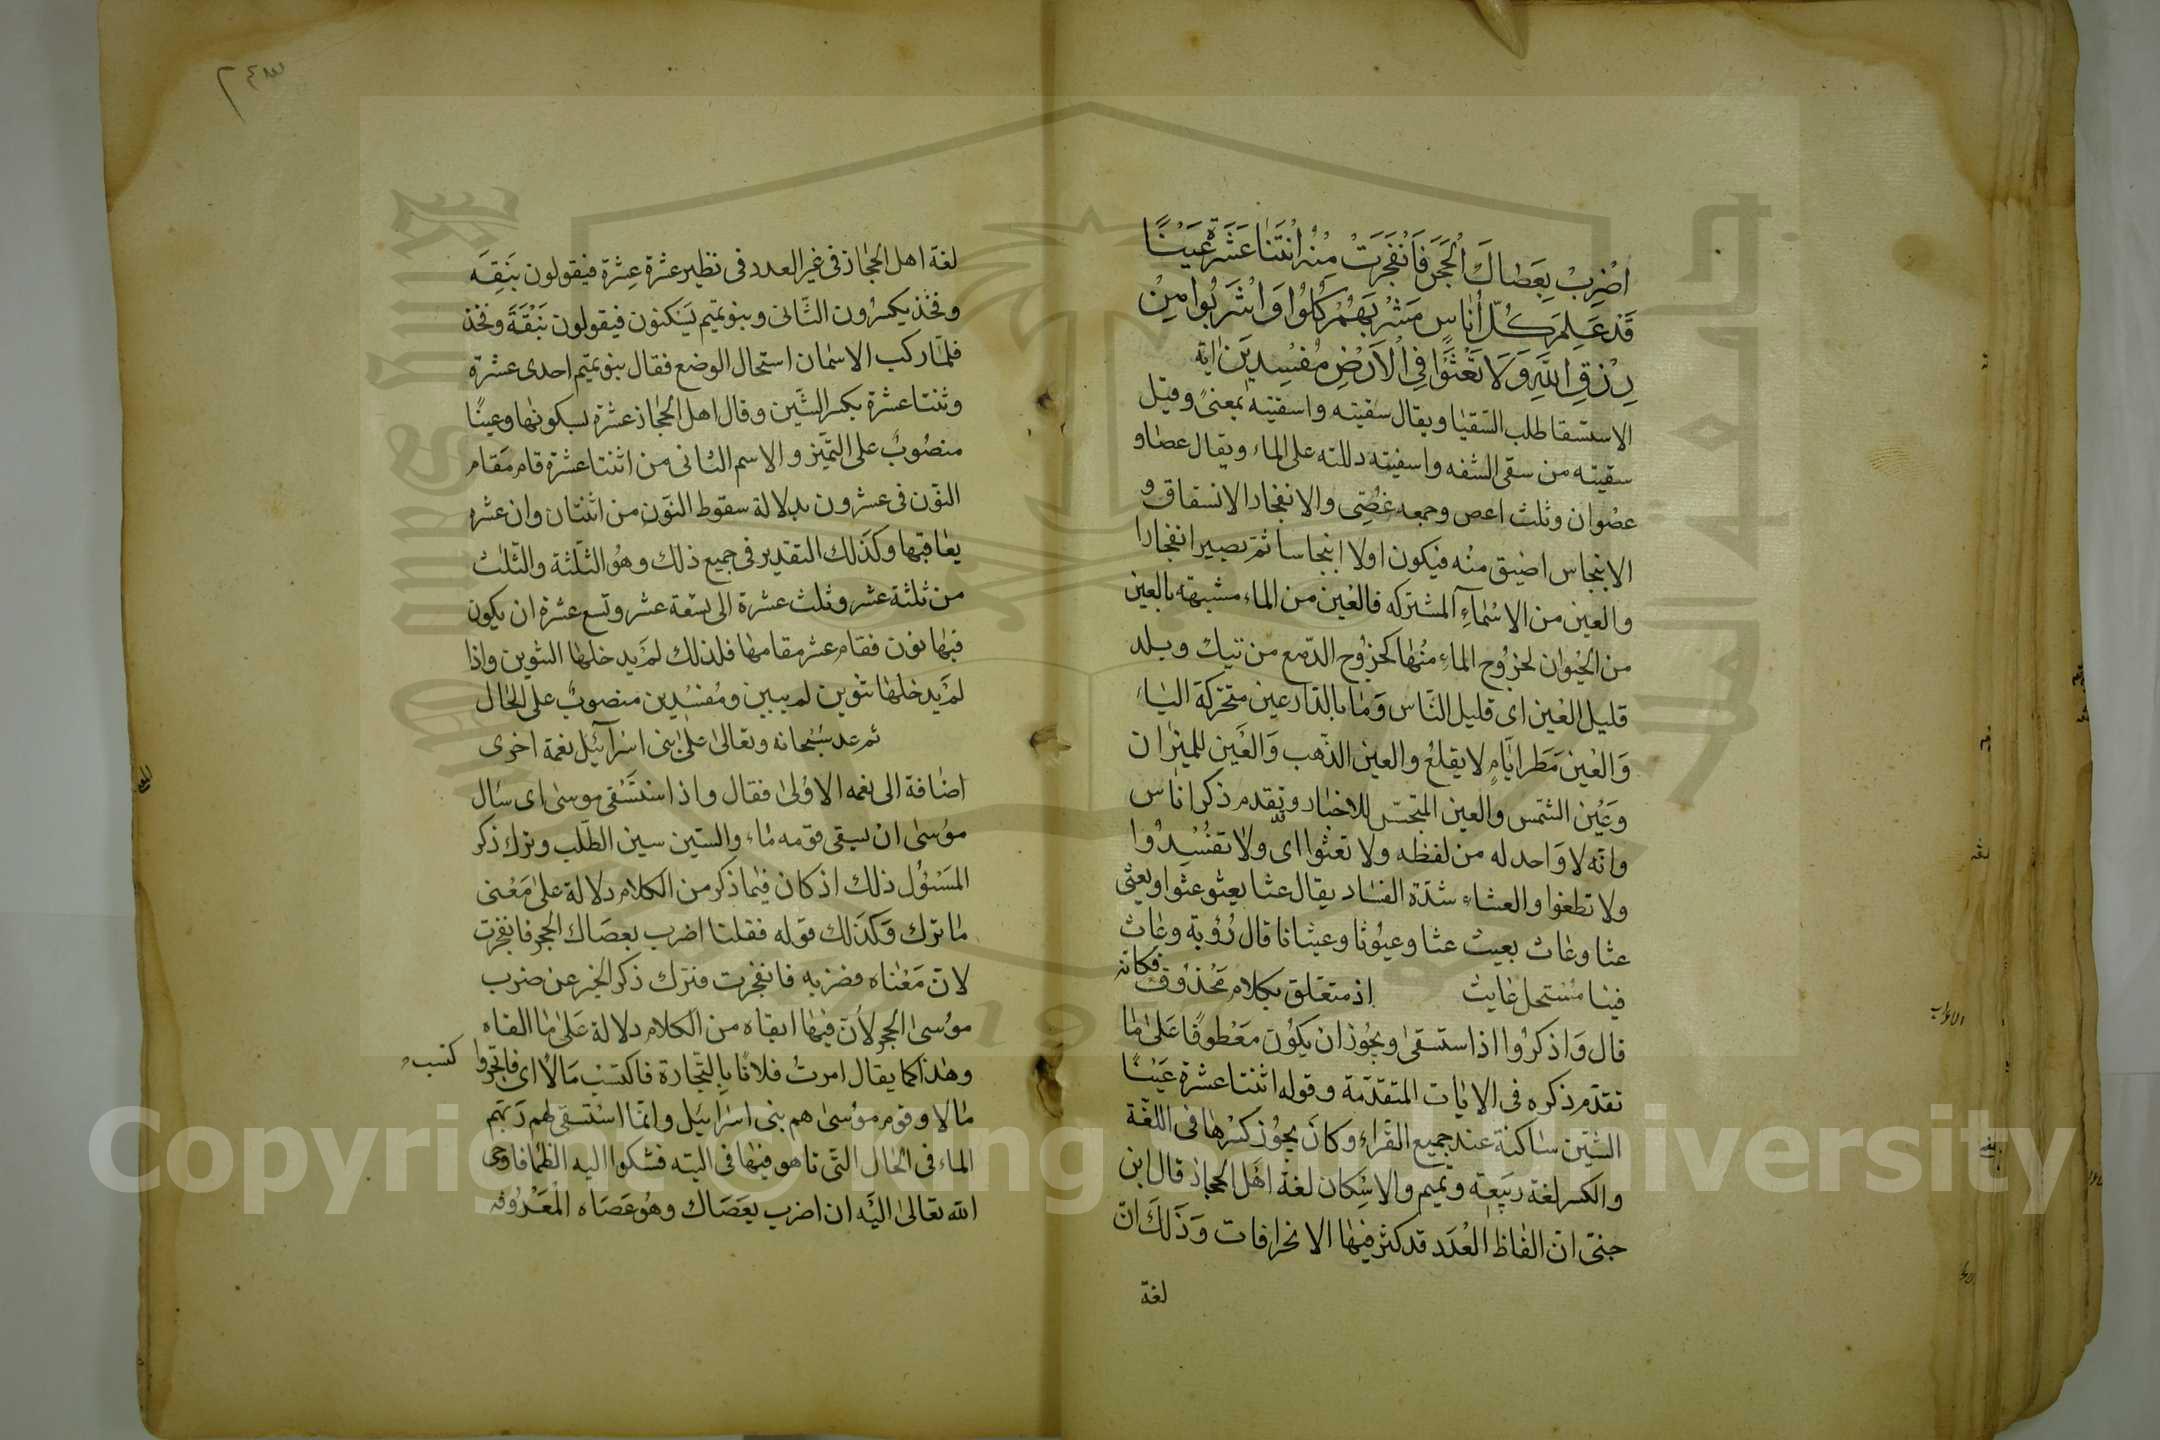 اضْرِبْ بِعَصَاكَ الْحَجَرَ فَانْفَجَرَتْ مِنْهُ اثْنَتَا عَشَرَةَ عَيْنًا
قَدْ عَلِمَ كُلُّ أُنَاسٍ مَشْرَبَهُمْ كُلُوا وَاشْرَبُوا مِنْ
رِزْقِ اللَّهِ وَلَا تَعْثَوْا فِي الْأَرْضِ مُفْسِدِينَ اية
الاستسقا طلب السقيا ويقال سقيته واسقيته بمعنىً وقيل
سقيته من سقى الشفه واسقيته دللته على الماء ويقال عصا و
عصوان وثلث اعص وجمعه عُصِيّ والانفجار الانشقاق و
الانبجاس اضيق منه فيكون اولا انبجاسا ثم يصير انفجارا
والعين من الاسماء المشتركه فالعين من الماء مشبهة بالعين
من الحيوان لخروج الماء منها كخروج الدمع من تيك وبلد
قليل العين اى قليل الناس وما بالدار عين متحركة الياء
والعين مَطَر ايّامٍ لا يقلع والعين الذهب والعين للميزان
وعين الشمس والعين المتجسس للاخبار وقد تقدم ذكر اناس
وانه لا واحد له من لفظه ولا تعثوا اى ولا تفسدوا
ولا تطغوا والعثاء شدّة الفساد يقال عثا يعثو عثوا ويعثى
عثا وعاث يعيث عثا وعيوثا وعيثانا قال رؤبة وعاث
فينا مستحل عايث اذ متعلق بكلام محذوف فكانه
قال واذكروا اذا استسقى ويجوز ان يكون معطوفا على ما
تقدم ذكره فى الايات المتقدمة وقوله اثنتا عشرة عينا
الشين ساكنة عند جميع القراء وكان يجوز كسرها فى اللغة
والكسر لغة ربيعة وتميم والاسكان لغة اهل الحجاز قال ابن
جنى ان الفاظ العدد قد كثر فيها الانحرافات وذلك انّ
لغة
لغة اهل الحجاز فى غير العدد فى نظير عشرة عِشرة فيقولون نَبِقَه
وفخذ يكسرون الثانى وبنو تميم يسكنون فيقولون نَبْقَةَ وفخذ
فلمّا ركب الاسمان استحال الوضع فقال بنو تميم احدى عشرة
وثنتا عشرة بكسر الشين وقال اهل الحجاز عشرة بسكونها وعينًا
منصوبٌ على التميز والاسم الثانى من اثنتا عشرة قام مقام
النون فى عشرون بدلالة سقوط النون من اثنتان وان عشره
يعاقبها وكذلك التقدير فى جميع ذلك وهو الثلثة والثلث
من ثلثة عشر وثلث عشرة الى تسعة عشر وتسع عشرة ان يكون
فيها نون فقام عشر مقامها فلذلك لم يدخلها التنوين واذا
لم يدخلها تنوين لم يبين ومفسدين منصوبٌ على الحال
ثم عد سبحانه وتعالى على بنى اسرآئيل نعمة اخرى
اضافة الى نعمه الاولى فقال واذ استسقى موسى اى سال
موسى ان يسقى قومه ماء والسين سين الطلب وترك ذكر
المسئول ذلك اذ كان فيما ذكر من الكلام دلالة على معنى
ما ترك وكذلك قوله فقلنا اضرب بعصاك الحجر فانفجرت
لان معناه فضربه فانفجرت فترك ذكر الخبر عن ضرب
موسى الحجر لان فيها ابقاه من الكلام دلالة على ما القاه
وهذا كما يقال امرتُ فلانًا بالتجارة فاكتسب مالًا اى فاتجروا كتسب
مالا وقوم موسى هم بنى اسرائيل وانما استسقى لهم ربهم
الماء فى الحال التى تاهو فيها فى التيه فشكوا اليه الظما فاوحى
الله تعالى اليه ان اضرب بعصاك وهو عصاه المعروفه
الاعراب
لغة
Copyright © King Saud University